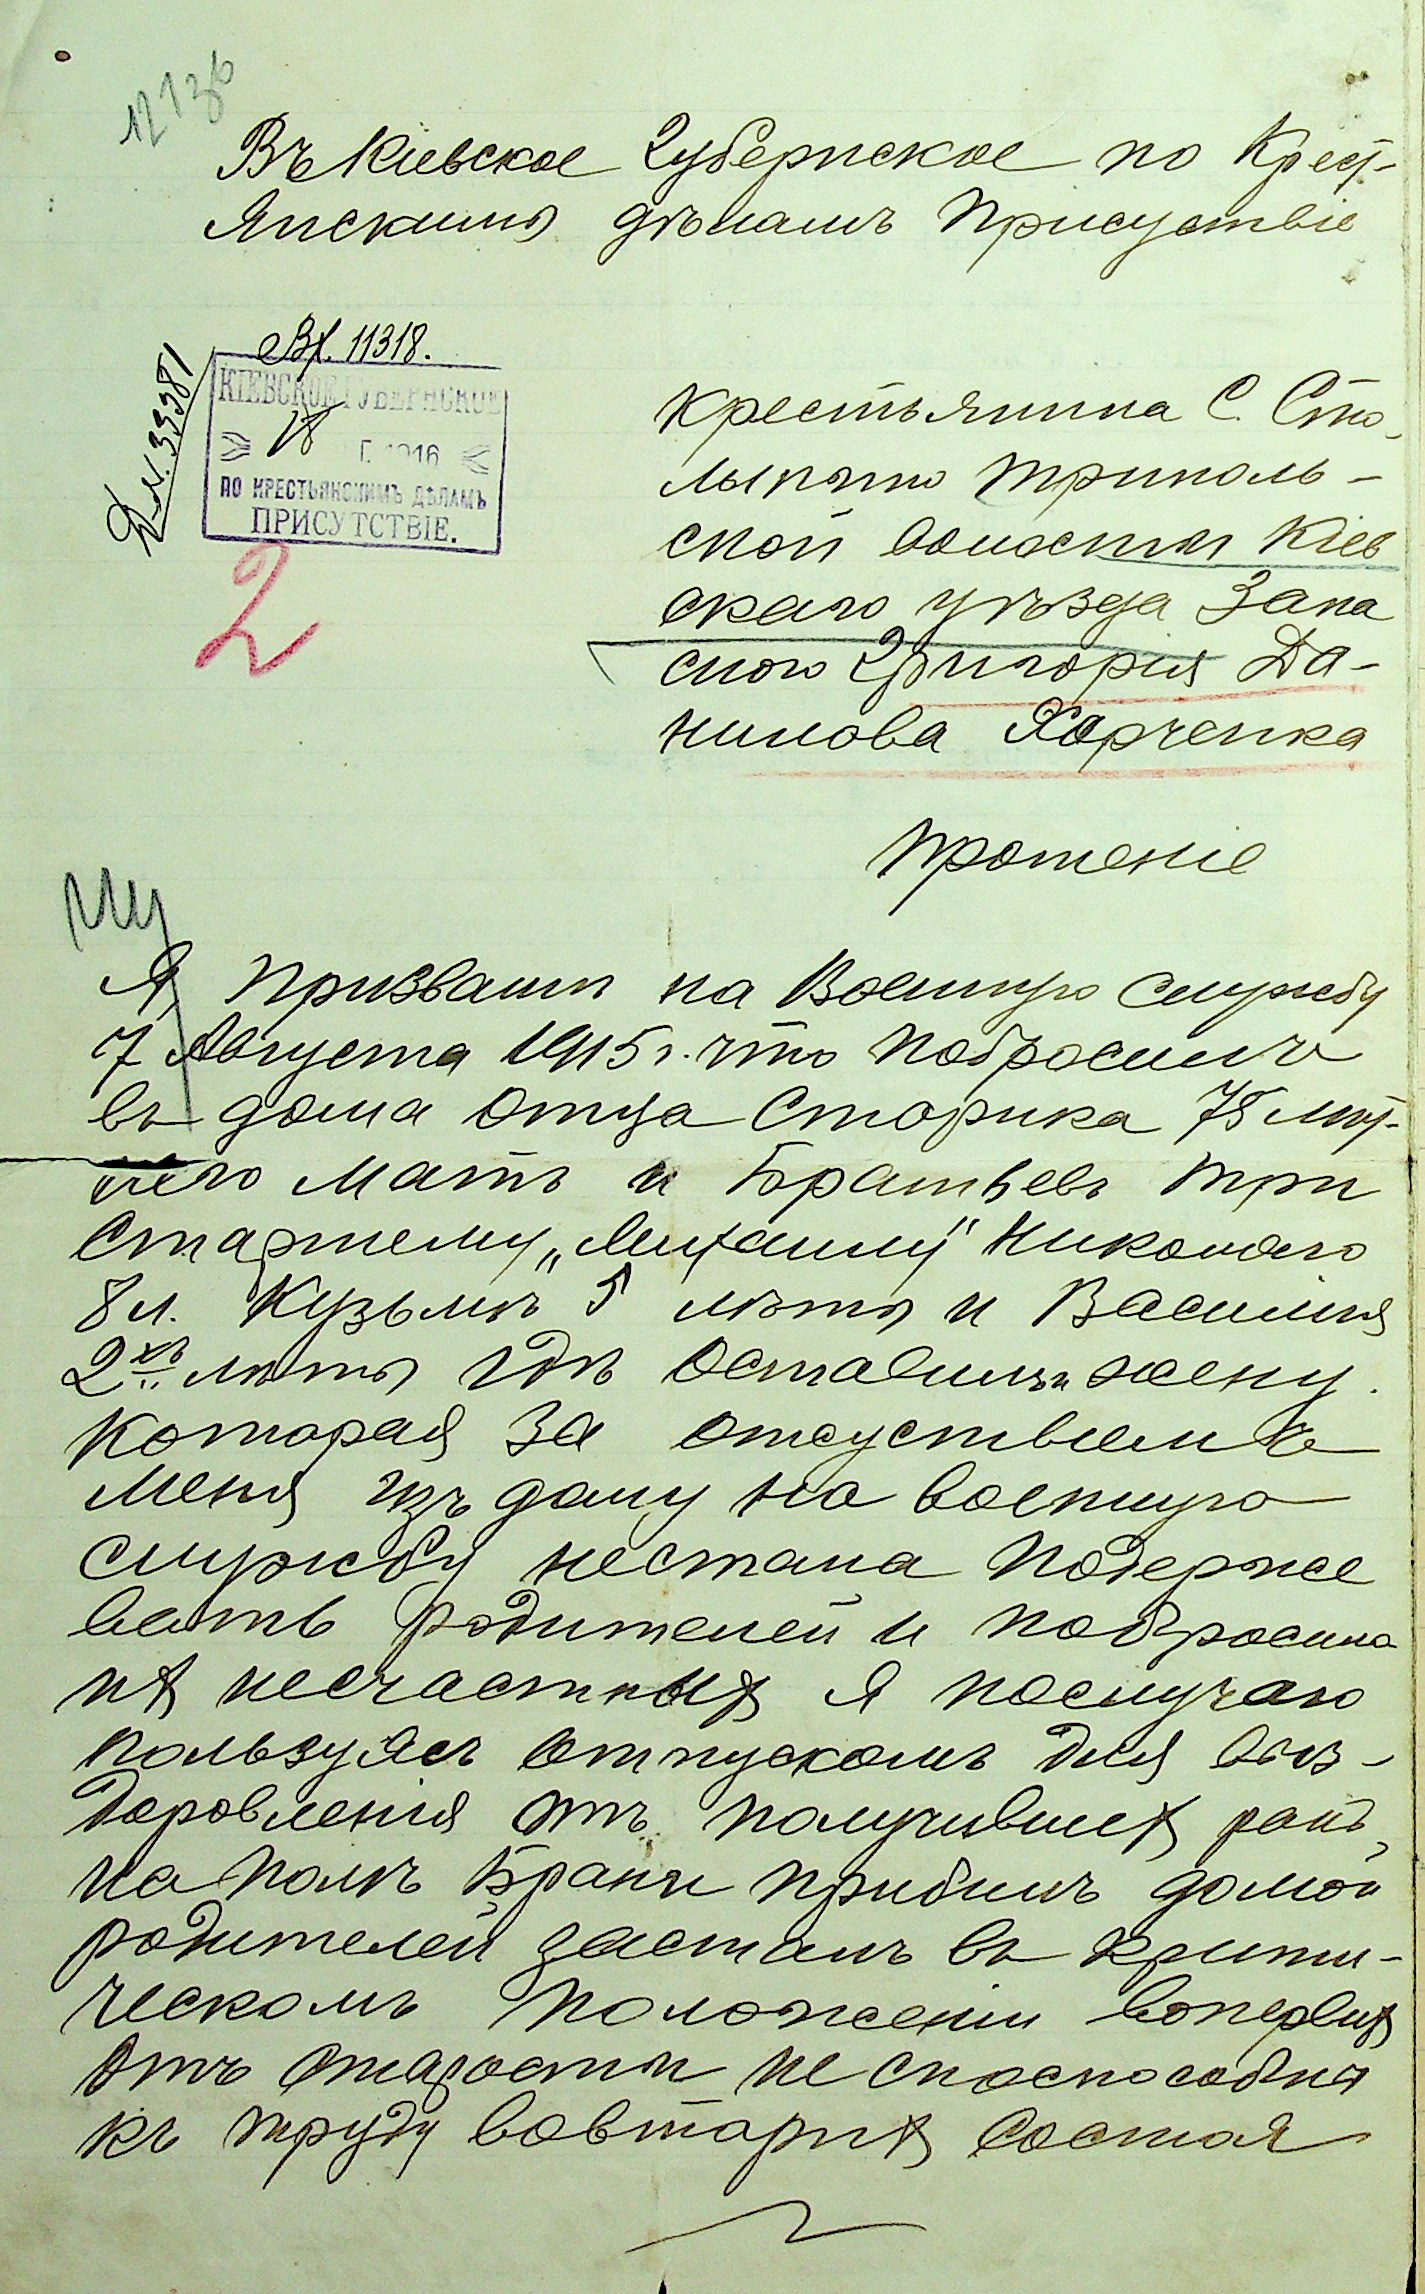 Въ Кіевское Губернское по Крест-
Янскимъ дѣламъ Присуствіе
Вх. 11318.
КІЕВСКОЕ ГУБЕРНСКОЕ
Г. 1916
ПО КРЕСТЬЯНСКИМЪ ДѢЛАМЪ
ПРИСУТСТВІЕ.
2
Крестьянина С. Сто-
лыпино Триполь-
ской волости Кіев
скаго уѣзда Запа
сного Григорія Да-
нилова Харченка
Прошеніе
Я, призванъ на Военную службу
7 Августа 1915 г. что побросилъ
въ дома отца Старика 75 лѣт-
него мать и Братьевъ три
Старшему „Михаилу" Николаю
8 л. Кузьмѣ 5 лѣтъ и Василія
2хъ лѣтъ гдѣ оставилъ и жену.
Которая за отсуствіемъ
меня изъ дому на военную
службу нестала подерже
вать родителей и побросила
их несчастных я послучаю
пользуясь отпускомъ для выз-
доровленія отъ получившех ранъ,
на полѣ Брани прибилъ домой
родителей засталъ въ крити-
ческомъ положеніи вопервих
отъ старости не споспособна
къ труду вовторих состоя